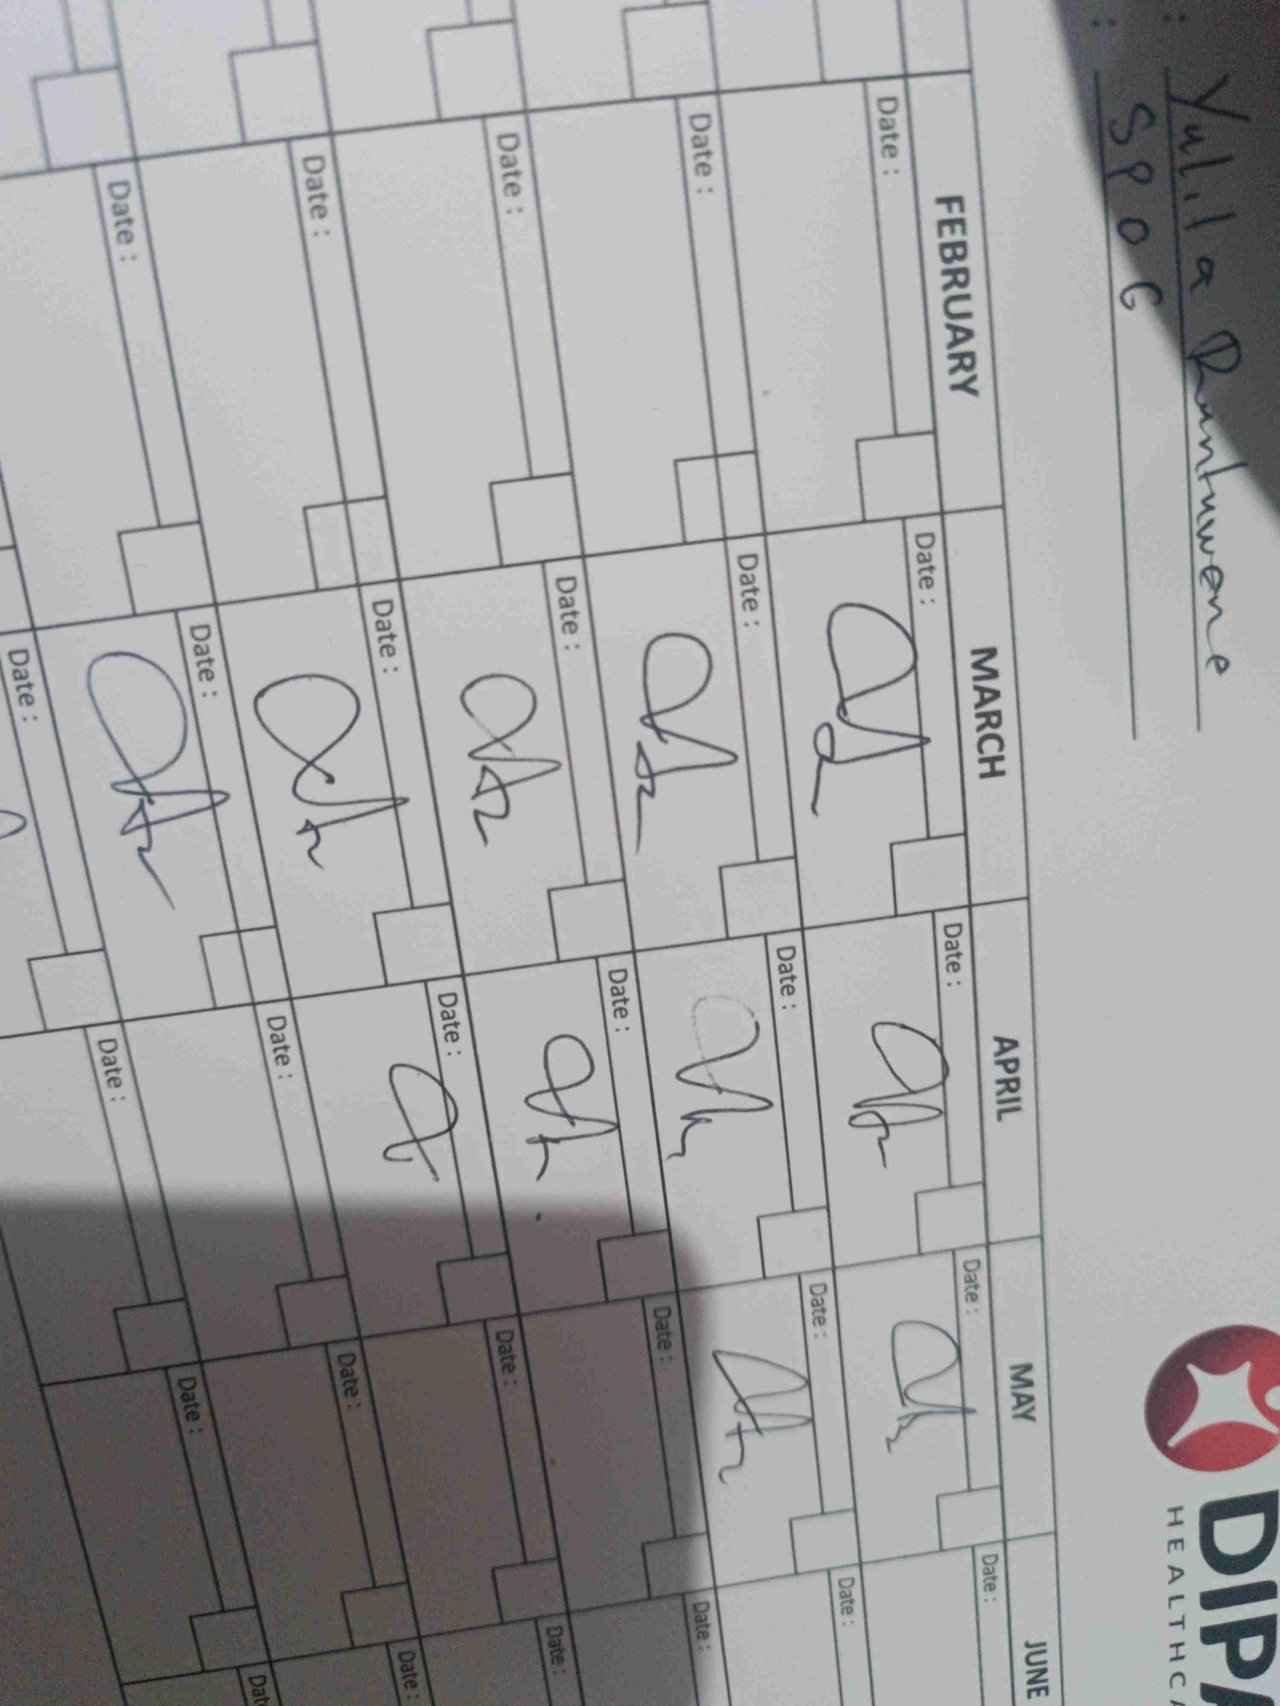 : Yulita Runtuwene
: SPOG
DIPA
HEALTHCA
FEBRUARY MARCH APRIL MAY JUNE
Date : Date : Date : Date : Date :
Date : Date : Date : Date : Date :
Date : Date : Date : Date : Date :
Date : Date : Date : Date : Date :
Date : Date : Date : Date : Date :
Date : Date : Date : Dat